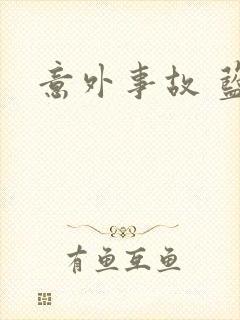 意外事故
有鱼互鱼